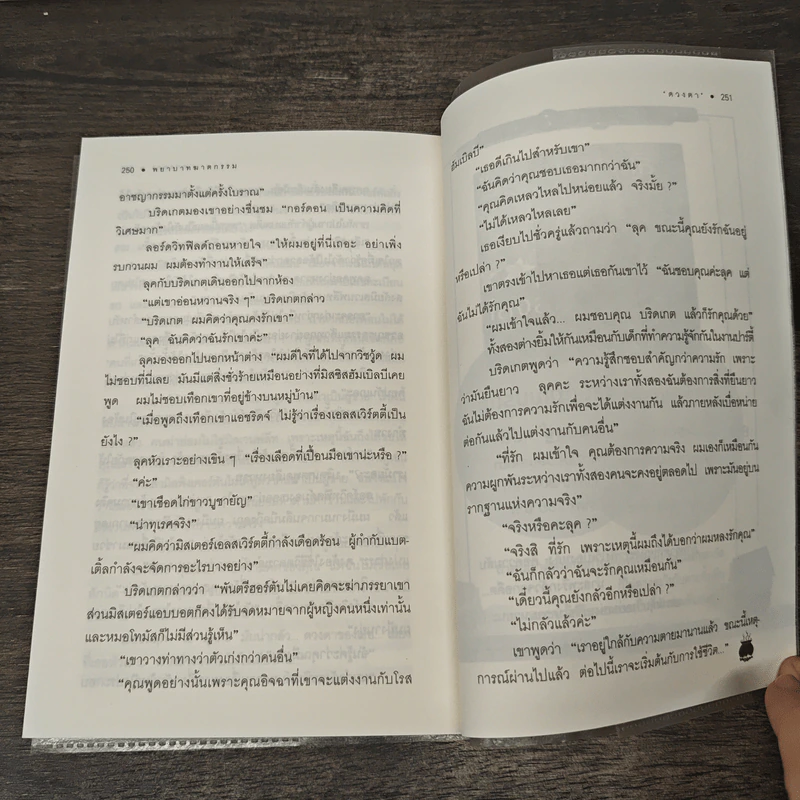 250 • พยาบาทฆาตกรรม
อาชญากรรมมาตั้งแต่ครั้งโบราณ"
บริดเกตมองเขาอย่างชื่นชม "กอร์ดอน เป็นความคิดที่
วิเศษมาก"
ลอร์ดวิทฟิลด์ถอนหายใจ "ให้ผมอยู่ที่นี่เถอะ อย่าเพิ่ง
รบกวนผม ผมต้องทำงานให้เสร็จ"
ลุคกับบริดเกตเดินออกไปจากห้อง
"แต่เขาอ่อนหวานจริง ๆ" บริดเกตกล่าว
"บริดเกต ผมคิดว่าคุณคงรักเขา"
"ลุค ฉันคิดว่าฉันรักเขาค่ะ"
ลุคมองออกไปนอกหน้าต่าง "ผมดีใจที่ได้ไปจากวิชวู้ด ผม
ไม่ชอบที่นี่เลย มันมีแต่สิ่งชั่วร้ายเหมือนอย่างที่มิสซิสฮัมเบิลบีเคย
พูด ผมไม่ชอบเทือกเขาที่อยู่ข้างบนหมู่บ้าน"
"เมื่อพูดถึงเทือกเขาแอชริดจ์ ไม่รู้ว่าเรื่องเอลสเวิร์ตตี้เป็น
ยังไง ?"
ลุคหัวเราะอย่างเขิน ๆ "เรื่องเลือดที่เปื้อนมือเขาน่ะหรือ ?"
"ค่ะ"
"เขาเชือดไก่ขาวบูชายัญ"
"น่าทุเรศจริง"
"ผมคิดว่ามิสเตอร์เอลสเวิร์ตตี้กำลังเดือดร้อน ผู้กำกับแบต-
เติ้ลกำลังจะจัดการอะไรบางอย่าง"
บริดเกตกล่าวว่า "พันตรีฮอร์ตันไม่เคยคิดจะฆ่าภรรยาเขา
ส่วนมิสเตอร์แอบบอตก็คงได้รับจดหมายจากผู้หญิงคนหนึ่งเท่านั้น
และหมอโทมัสก็ไม่มีส่วนรู้เห็น"
"เขาวางท่าทางว่าตัวเก่งกว่าคนอื่น"
"คุณพูดอย่างนั้นเพราะคุณอิจฉาที่เขาจะแต่งงานกับโรส
'ดวงตา' • 251
ฮัมเบิลบี"
"เธอดีเกินไปสำหรับเขา"
"ฉันคิดว่าคุณชอบเธอมากกว่าฉัน"
"คุณคิดเหลวไหลไปหน่อยแล้ว จริงมั้ย ?"
"ไม่ได้เหลวไหลเลย"
เธอเงียบไปชั่วครู่แล้วถามว่า "ลุค ขณะนี้คุณยังรักฉันอยู่
หรือเปล่า ?"
เขาตรงเข้าไปหาเธอแต่เธอกันเขาไว้ "ฉันชอบคุณค่ะลุค แต่
ฉันไม่ได้รักคุณ"
"ผมเข้าใจแล้ว... ผมชอบคุณ บริดเกต แล้วก็รักคุณด้วย"
ทั้งสองต่างยิ้มให้กันเหมือนกับเด็กที่ทำความรู้จักกันในงานปาร์ตี้
บริดเกตพูดว่า "ความรู้สึกชอบสำคัญกว่าความรัก เพราะ
ว่ามันยืนยาว ลุคคะ ระหว่างเราทั้งสองฉันต้องการสิ่งที่ยืนยาว
ฉันไม่ต้องการความรักเพื่อจะได้แต่งงานกัน แล้วภายหลังเบื่อหน่าย
ต่อกันแล้วไปแต่งงานกับคนอื่น"
"ที่รัก ผมเข้าใจ คุณต้องการความจริง ผมเองก็เหมือนกัน
ความผูกพันระหว่างเราทั้งสองคนจะคงอยู่ตลอดไป เพราะมันอยู่บน
รากฐานแห่งความจริง"
"จริงหรือคะลุค ?"
"จริงสิ ที่รัก เพราะเหตุนี้ผมถึงได้บอกว่าผมหลงรักคุณ"
"ฉันก็กลัวว่าฉันจะรักคุณเหมือนกัน"
"เดี๋ยวนี้คุณยังกลัวอีกหรือเปล่า ?"
"ไม่กลัวแล้วค่ะ"
เขาพูดว่า "เราอยู่ใกล้กับความตายมานานแล้ว ขณะนี้เหตุ-
การณ์ผ่านไปแล้ว ต่อไปนี้เราจะเริ่มต้นกับการใช้ชีวิต..."